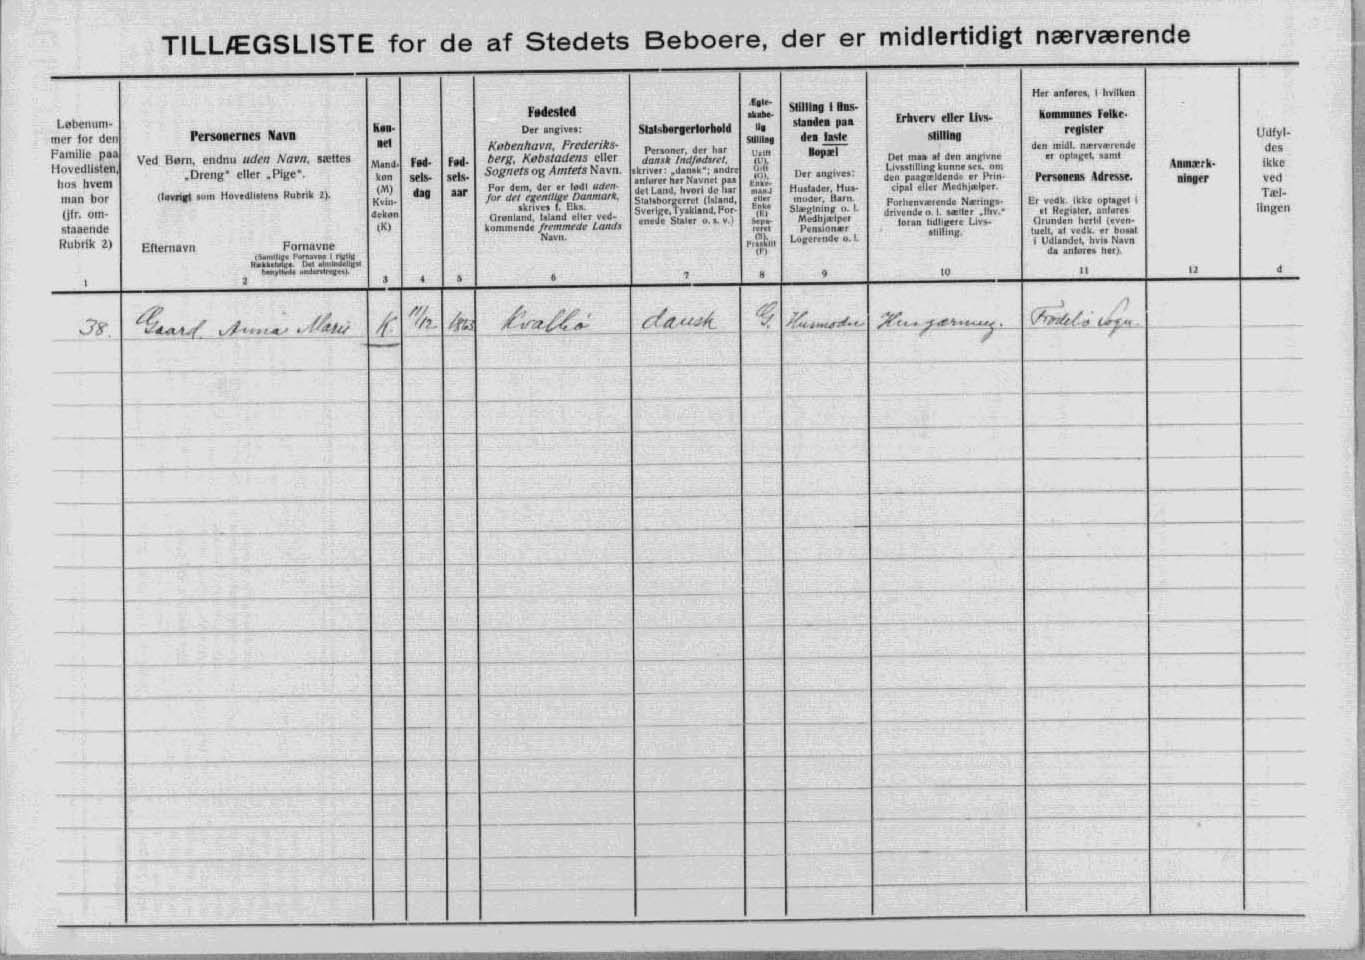 TILLÆGSLISTE for de af Stedets Beboere, der er midlertidigt nærværende
Løbenum-
mer for den
Familie paa
Hovedlisten,
hos hvem
man bor
(jfr. om-
staaende
Rubrik 2)
1
Personernes Navn
Ved Børn, endnu uden Navn, sættes
„Dreng“ eller „Pige“.
(Iøvrigt som Hovedlistens Rubrik 2).
Efternavn Fornavne
(Samtlige Fornavne i rigtig
Rækkefølge. Det almindeligst
benyttede understreges).
2
Køn-
net
Mand-
køn
(M)
Kvin-
dekøn
(K)
3
Fød-
sels-
dag
4
Fød-
sels-
aar
5
Fødested
Der angives:
København, Frederiks-
berg, Købstadens eller
Sognets og Amtets Navn.
For dem, der er født uden-
for det egentlige Danmark,
skrives f. Eks.
Grønland, Island eller ved-
kommende fremmede Lands
Navn.
6
Statsborgerforhold
Personer, der har
dansk Indfødsret,
skriver: „dansk“; andre
anfører her Navnet paa
det Land, hvori de har
Statsborgerret (Island,
Sverige, Tyskland, For-
enede Stater o. s. v.)
7
Ægte-
skabe-
lig
Stilling
Ugift
(U),
Gift
(G),
Enke-
mand
eller
Enke
(E)
Sepa-
reret
(S),
Fraskilt
(F)
8
Stilling i Hus-
standen paa
den faste
Bopæl
Der angives:
Husfader, Hus-
moder, Barn,
Slægtning o. l.
Medhjælper
Pensionær
Logerende o. l.
9
Erhverv eller Livs-
stilling
Det maa af den angivne
Livsstilling kunne ses, om
den paagældende er Prin-
cipal eller Medhjælper.
Forhenværende Nærings-
drivende o. l. sætter „fhv.“
foran tidligere Livs-
stilling.
10
Her anføres, i hvilken
Kommunes Folke-
register
den midl. nærværende
er optaget, samt
Personens Adresse.
Er vedk. ikke optaget i
et Register, anføres
Grunden hertil (even-
tuelt, at vedk. er bosat
i Udlandet, hvis Navn
da anføres her).
11
Anmærk-
ninger
12
Udfyl-
des
ikke
ved
Tæl-
lingen
d
38. Gaard. Anna Marie K. 11/12 1863 dansk G. Husmoder Husgerning. Sogn.